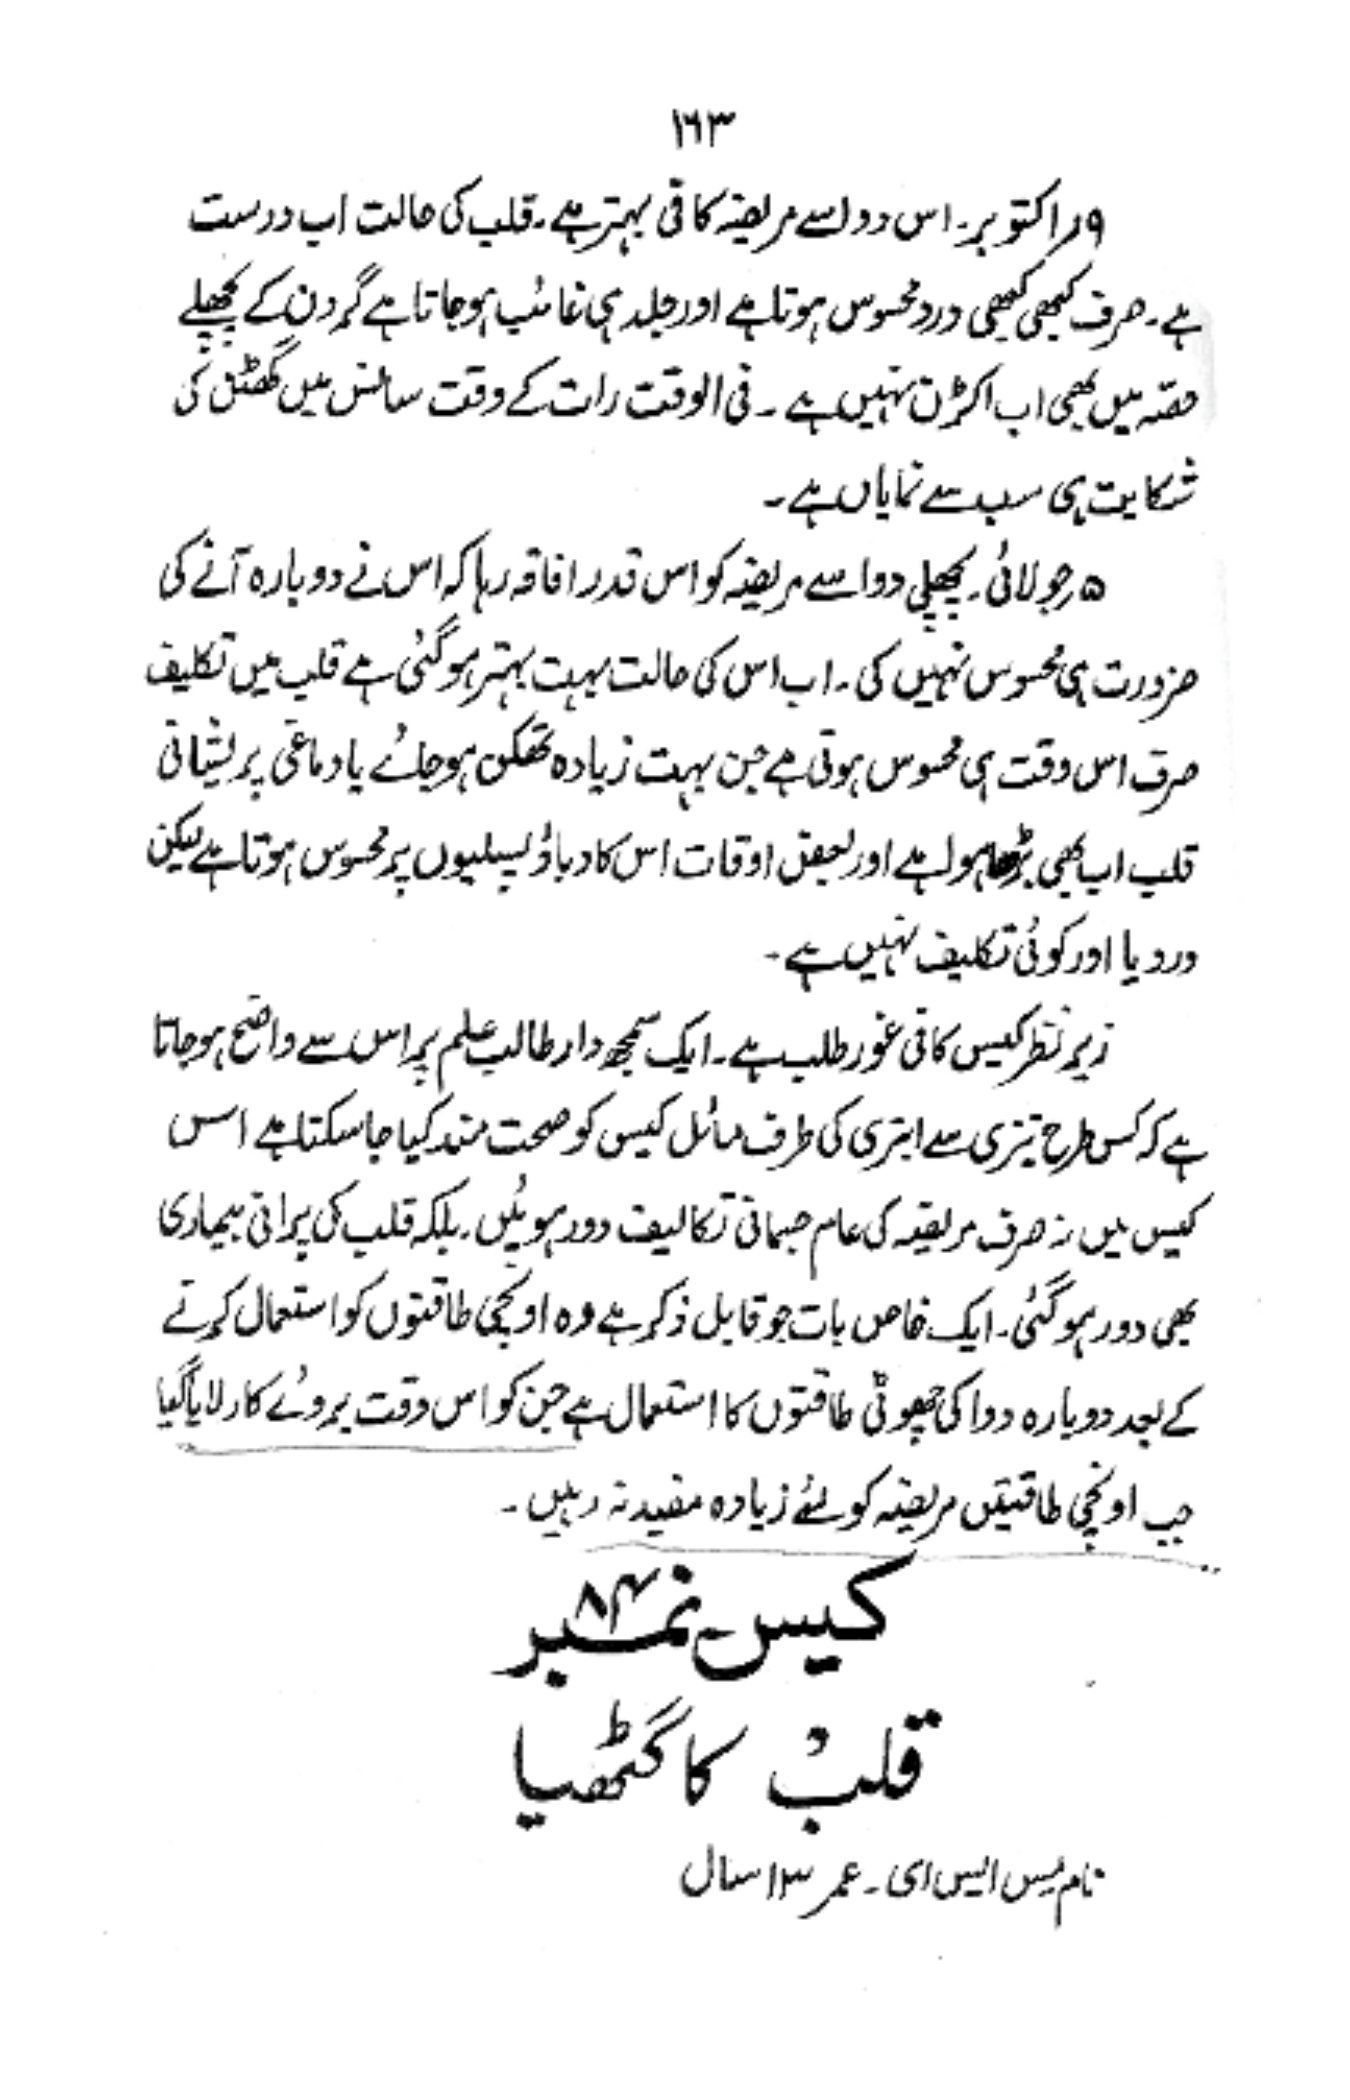 ۱۶۳
۹ر اکتوبر۔ اس دوا سے مریضہ کافی بہتر ہے۔ قلب کی حالت اب درست
ہے۔ صرف کبھی کبھی درد محسوس ہوتا ہے اور جلد ہی غائب ہوجاتا ہے گردن کے پچھلے
حصّہ میں بھی اب اکڑن نہیں ہے ۔ فی الوقت رات کے وقت سانس میں گھٹن کی
شکایت ہی سب سے نمایاں ہے۔
۵ر جولائی۔ پچھلی دوا سے مریضہ کو اس قدر افاقہ رہا کہ اس نے دوبارہ آنے کی
ضرورت ہی محسوس نہیں کی۔ اب اس کی حالت بہت بہتر ہوگئی ہے قلب میں تکلیف
صرف اس وقت ہی محسوس ہوتی ہے جن بہت زیادہ تھکن ہوجائے یا دماغی پریشانی
قلب اب بھی بڑھا ہوا ہے اور بعض اوقات اس کا دباؤ پسلیوں پر محسوس ہوتا ہے لیکن
درد یا اور کوئی تکلیف نہیں ہے۔
زیر نظر کیس کافی غور طلب ہے۔ ایک سمجھ دار طالب علم پر اس سے واضح ہوجاتا
ہے کہ کس طرح تیزی سے ابتری کی طرف مائل کیس کو صحت مند کیا جاسکتا ہے اس
کیس میں نہ صرف مریضہ کی عام جسمانی تکالیف دور ہوئیں۔ بلکہ قلب کی پرانی بیماری
بھی دور ہوگئی۔ ایک خاص بات جو قابل ذکر ہے وہ اونچی طاقتوں کو استعمال کرنے
کے بعد دوبارہ دوا کی چھوٹی طاقتوں کا استعمال ہے جن کو اس وقت بروئے کار لایا گیا
جب اونچی طاقتیں مریضہ کو لئے زیادہ مفید نہ رہیں۔
کیس نمبر ۸۴
قلب کا گٹھیا
نام مِس ایس ای۔ عمر ۱۳ سال